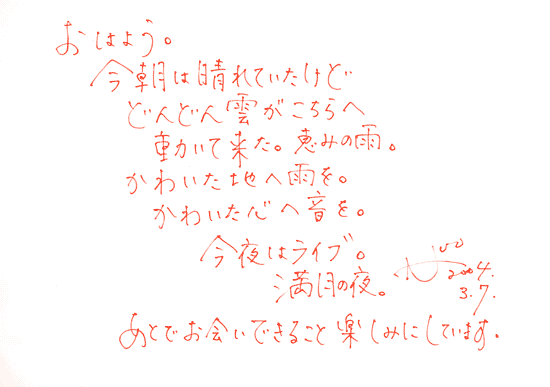 おはよう。
今朝は晴れていたけど
どんどん雲がこちらへ
動いて来た。恵みの雨。
かわいた地へ雨を。
かわいた心へ音を。
今夜はライブ。
満月の夜。
2004.
3.7.
あとでお会いできること楽しみにしています。